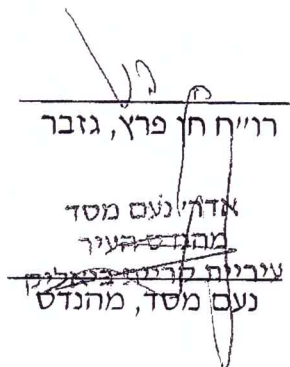 רו״ח חן פרץ, גזבר
אדר׳ נעם מסד
מהנדס העיר
עיריית קרית ביאליק
נעם מסד, מהנדס